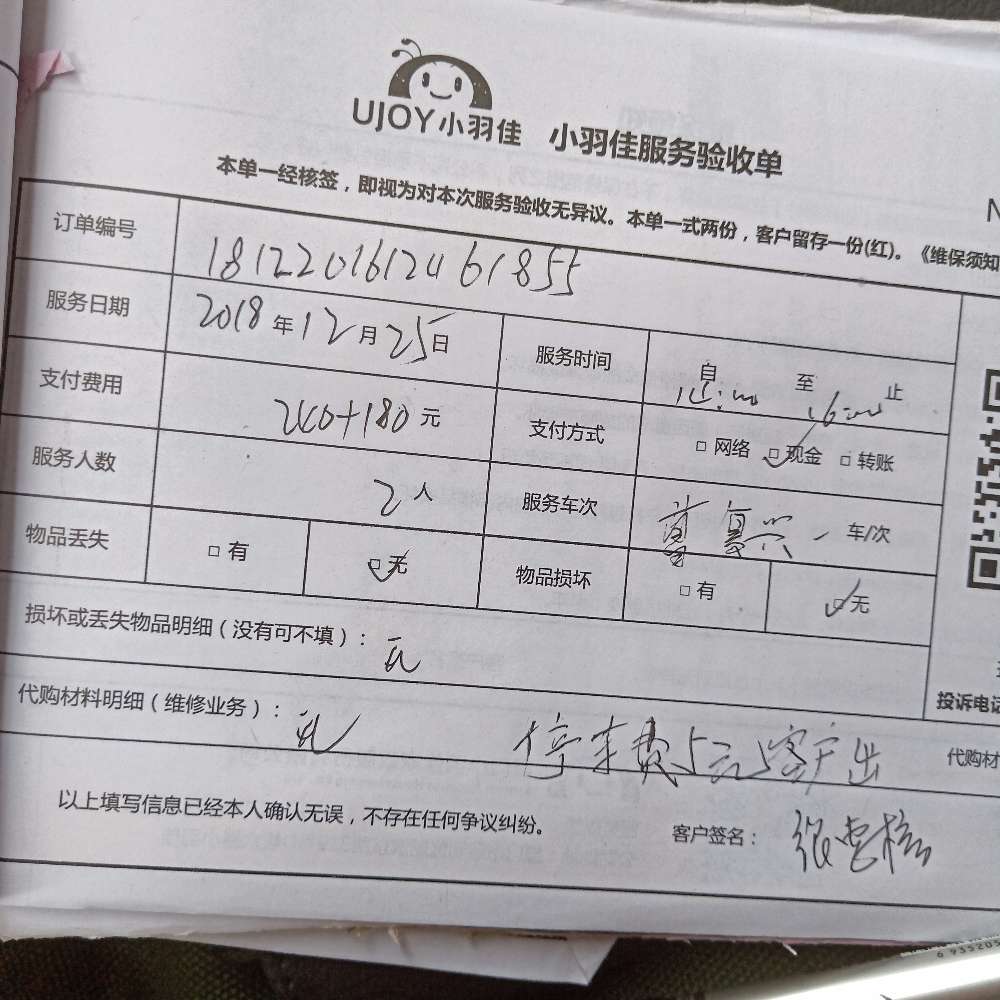 UJOY小羽佳 小羽佳服务验收单
本单一经核签，即视为对本次服务验收无异议。本单一式两份，客户留存一份(红)。《维保须知
订单编号 181220161246 1855
服务日期 2018年12月25日 服务时间 自 至 16:00 止
支付费用 240+180元 支付方式 □ 网络 ☑ 现金 □ 转账
服务人数 2人 服务车次 车/次
物品丢失 □ 有 ☑ 无 物品损坏 □ 有 ☑ 无
损坏或丢失物品明细（没有可不填）：无
投诉电话
代购材料明细（维修业务）：无 停车费5元客户出 代购材
以上填写信息已经本人确认无误，不存在任何争议纠纷。 客户签名：张
6 935205